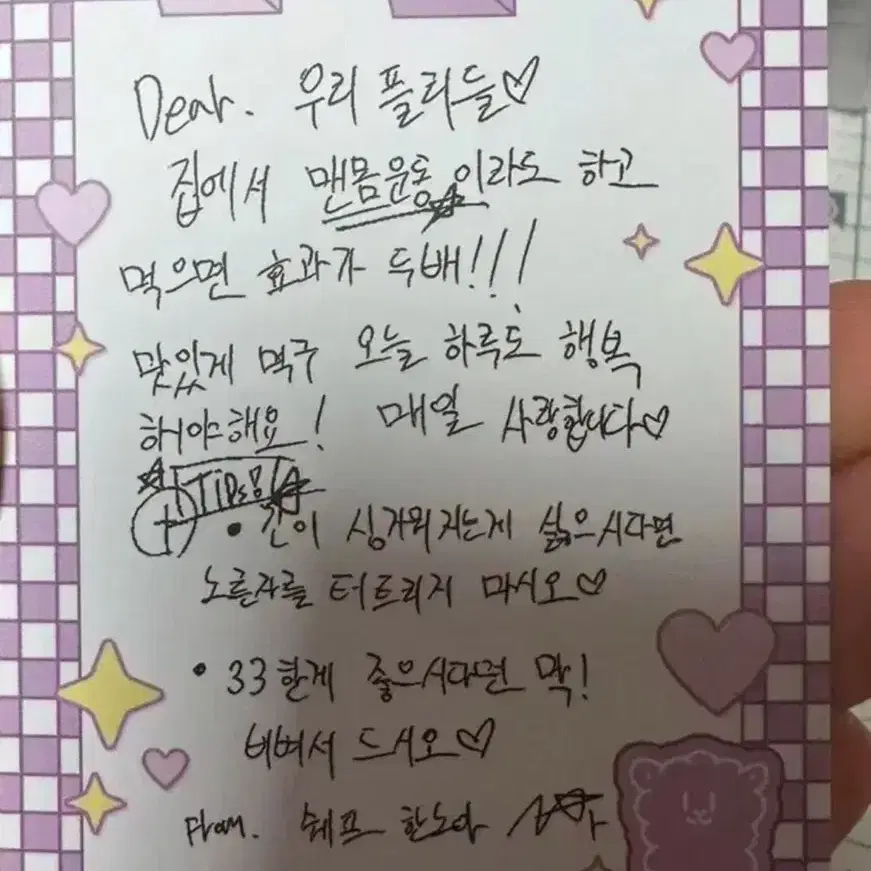 Dear. 우리 플리들♡
집에서 맨몸운동이라도 하고
먹으면 효과가 두배!!!
맛있게 먹구 오늘 하루도 행복
해야해요! 매일 사랑합니다♡
☆Tips!☆
+ • 간이 싱거워지는게 싫으시다면
노른자를 터트리지 마시오♡
• 33한게 좋으시다면 막!
비벼서 드시오♡
From. 쉐프 한노아